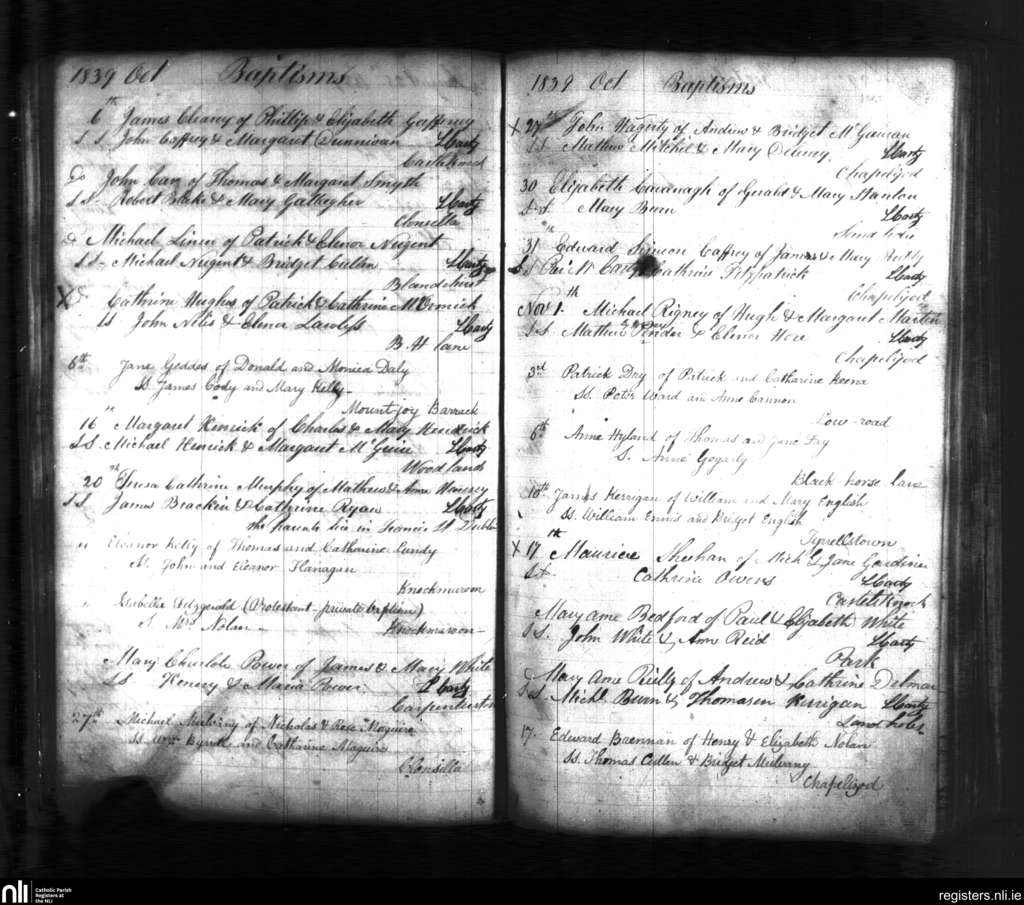 1839 Oct Baptisms
6th James Cleary of Phillip & Elizabeth Gaffney
S S John Caffrey & Margaret Dunnivan LCarty
Castleknock
Do John Carr of Thomas & Margaret Smyth
S S Robert Blake & Mary Gallegher LCarty
Clonsilla
Do Michael Linen of Patrick & Elenor Nugent
S S Michael Nugent & Bridget Cullen LCarty
X Do Cathrine Hughes of Patrick & Cathrine McCormick
SS John Niles & Elenor Lawless LCarty
B. H lane
6th Jane Geddes of Donald and Monica Daly
SS. James Cody and Mary Kelly
Mountjoy Barrack
16th Margaret Kenrick of Charles & Mary Kendrick
S S Michael Kenrick & Margaret McGuire LCarty
Woodlands
20th Teresa Cathrine Murphy of Mathew & Anne
S S James Bracken & Cathrine Ryan LCarty
the parents live in Francis St Dublin
" Eleanor Kelly of Thomas and Catharine Cundy
SS. John and Eleanor Flanagan
Knockmaroon
" Isabella Fitzgerald (Protestant - private baptism)
S Mrs Nolan
Knockmaroon
Mary Charlote Power of James & Mary White
S S Henery & Maria Power LCarty
Carpenterstown
27th Michael Mulvany of Nicholas & Rose Maguire
SS. Wm Byrne and Catharine Maguire
Clonsilla
1839 Oct Baptisms
X 27th John Hagerty of Andrew & Bridget McGaman
S S Mathew Mitchel & Mary Delaney LCarty
Chapelizod
30 Elizabeth Cavenagh of Gerald & Mary Hanlon
S S Mary Burn LCarty
31th Edward Simeon Caffrey of James & Mary Reddy
S S Cathrine Fitzpatrick LCarty
Chapelizod
Nov 1th Michael Rigney of Hugh & Margaret Martin
S S Mathew Pender & Elenor Hore LCarty
Chapelizod
3rd Patrick Day of Patrick and Catharine Keena
SS. Peter Ward and Anne Cannon
Low-road
6th Anne Hyland of Thomas and Jane Fay
S. Anne Gogarty
Black horse lane
10th James Kerrigan of William and Mary English
SS. William Ennis and Bridget English
Tyrrellstown
X 17th Maurice Sheehan of Mick & Jane Gardiner
S S Cathrine Owens LCarty
Castleknock
Mary Anne Bedford of Paul & Elizabeth White
S S. John White & Ann Reid LCarty
Park
Do Mary Anne Rielly of Andrew & Cathrine Delmar
S S. Michl Burn & Thomasin Kerrigan LCarty
17. Edward Brennan of Henry & Elizabeth Nolan
SS. Thomas Cullen & Bridget Mulvany
Chapelizod
nli
Catholic Parish
Registers at
the NLI
registers.nli.ie